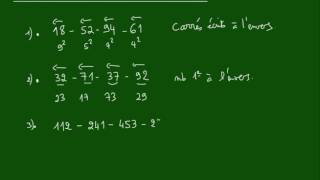 1). 18 - 52 - 94 - 61 Carrés écrit à l'envers.
9² 5² 7² 4²
2). 32 - 71 - 37 - 92 nb 1er à l'envers.
23 17 73 29
3). 112 - 241 - 453 - 2